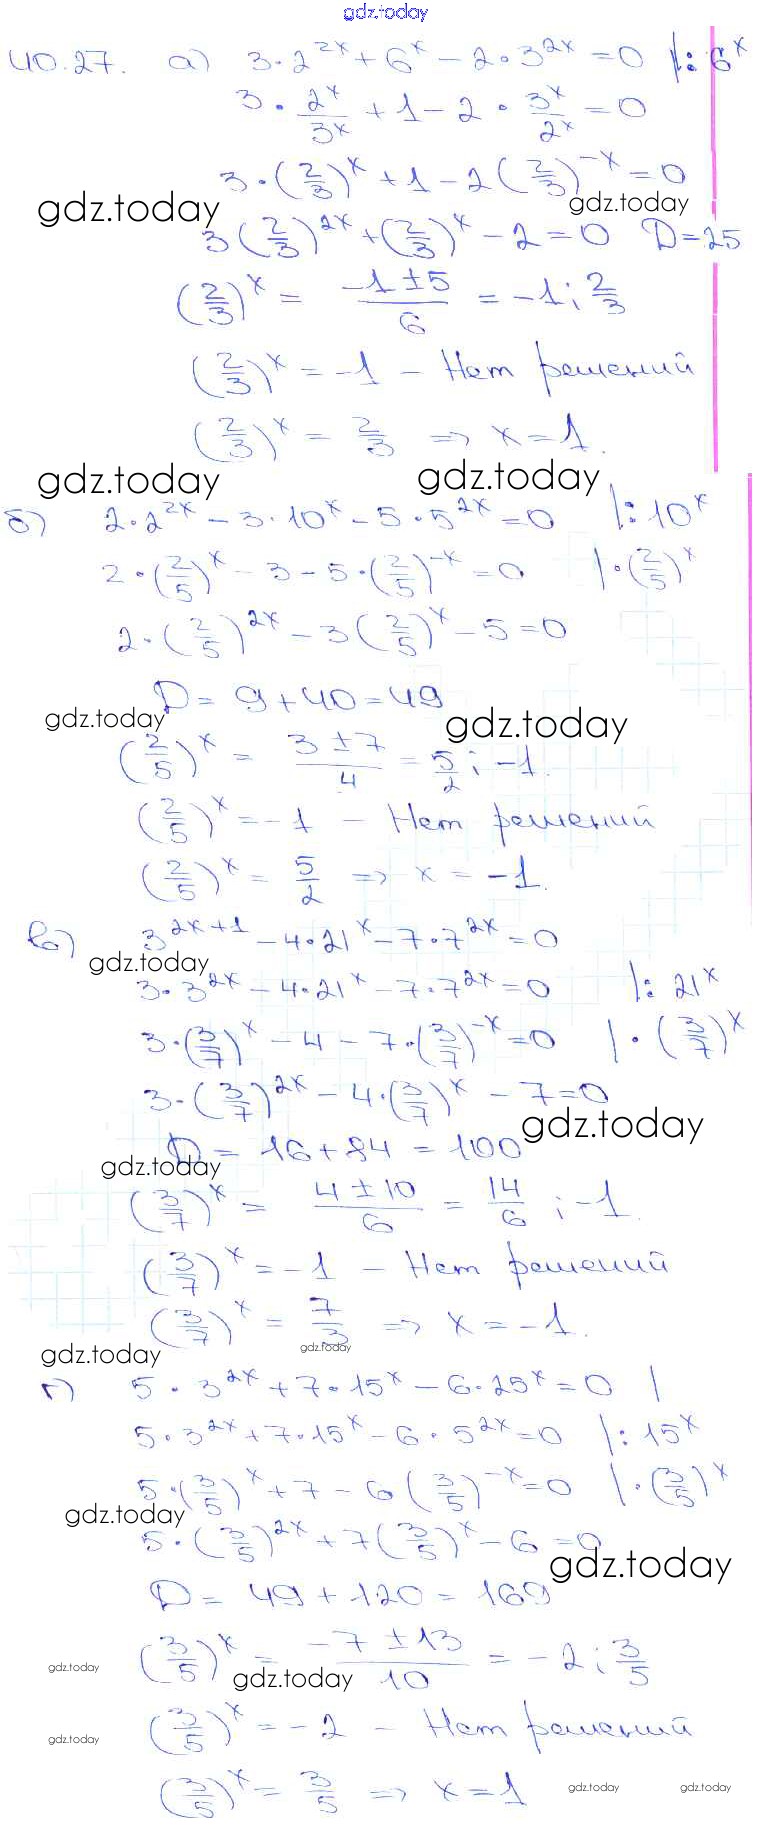 gdz.today
40.27. а) 3·2^{2x} + 6^x - 2·3^{2x} = 0 |:6^x
3·\frac{2^x}{3^x} + 1 - 2·\frac{3^x}{2^x} = 0
3·(\frac{2}{3})^x + 1 - 2(\frac{2}{3})^{-x} = 0
gdz.today gdz.today
3(\frac{2}{3})^{2x} + (\frac{2}{3})^x - 2 = 0 D = 25
(\frac{2}{3})^x = \frac{-1 ± 5}{6} = -1; \frac{2}{3}
(\frac{2}{3})^x = -1 - Нет решений
(\frac{2}{3})^x = \frac{2}{3} => x = 1.
gdz.today gdz.today
б) 2·2^{2x} - 3·10^x - 5·5^{2x} = 0 |:10^x
2·(\frac{2}{5})^x - 3 - 5·(\frac{2}{5})^{-x} = 0 |·(\frac{2}{5})^x
2·(\frac{2}{5})^{2x} - 3(\frac{2}{5})^x - 5 = 0
D = 9 + 40 = 49
gdz.today gdz.today
(\frac{2}{5})^x = \frac{3 ± 7}{4} = \frac{5}{2}; -1.
(\frac{2}{5})^x = -1 - Нет решений
(\frac{2}{5})^x = \frac{5}{2} => x = -1.
в) 3^{2x+1} - 4·21^x - 7·7^{2x} = 0
gdz.today
3·3^{2x} - 4·21^x - 7·7^{2x} = 0 |: 21^x
3·(\frac{3}{7})^x - 4 - 7·(\frac{3}{7})^{-x} = 0 |·(\frac{3}{7})^x
3·(\frac{3}{7})^{2x} - 4·(\frac{3}{7})^x - 7 = 0
gdz.today
D = 16 + 84 = 100
gdz.today
(\frac{3}{7})^x = \frac{4 ± 10}{6} = \frac{14}{6}; -1.
(\frac{3}{7})^x = -1 - Нет решений
(\frac{3}{7})^x = \frac{7}{3} => x = -1.
gdz.today gdz.today
г) 5·3^{2x} + 7·15^x - 6·25^x = 0 |
5·3^{2x} + 7·15^x - 6·5^{2x} = 0 |:15^x
5·(\frac{3}{5})^x + 7 - 6(\frac{3}{5})^{-x} = 0 |·(\frac{3}{5})^x
gdz.today
5·(\frac{3}{5})^{2x} + 7(\frac{3}{5})^x - 6 = 0
gdz.today
D = 49 + 120 = 169
(\frac{3}{5})^x = \frac{-7 ± 13}{10} = -2; \frac{3}{5}
gdz.today gdz.today
(\frac{3}{5})^x = -2 - Нет решений
gdz.today
(\frac{3}{5})^x = \frac{3}{5} => x = 1
gdz.today gdz.today